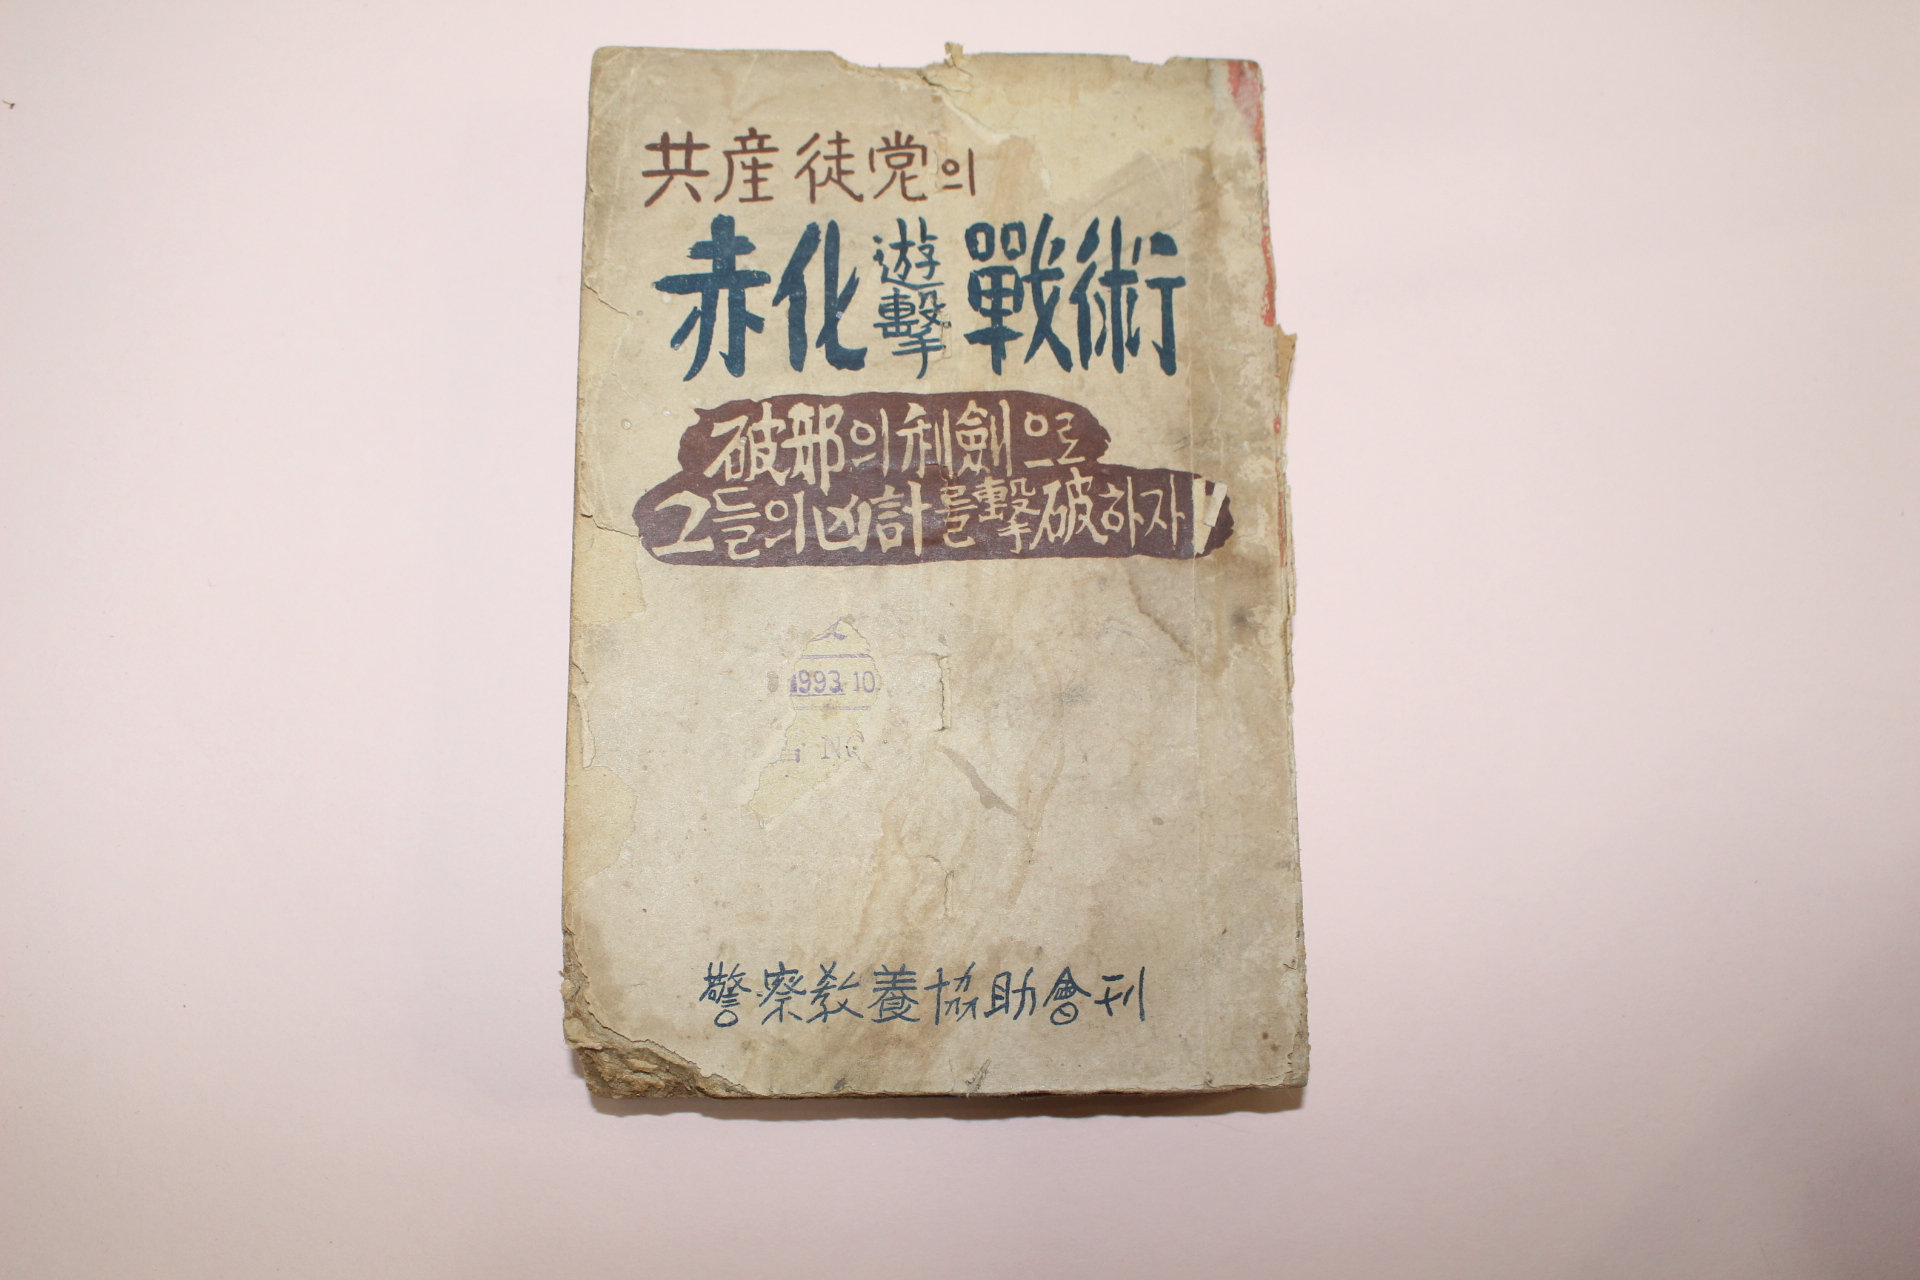 共産徒党의
赤化遊擊戰術
破邪의利劍으로
그들의凶計를擊破하자!
1993. 10
NO
警察敎養協助會刊